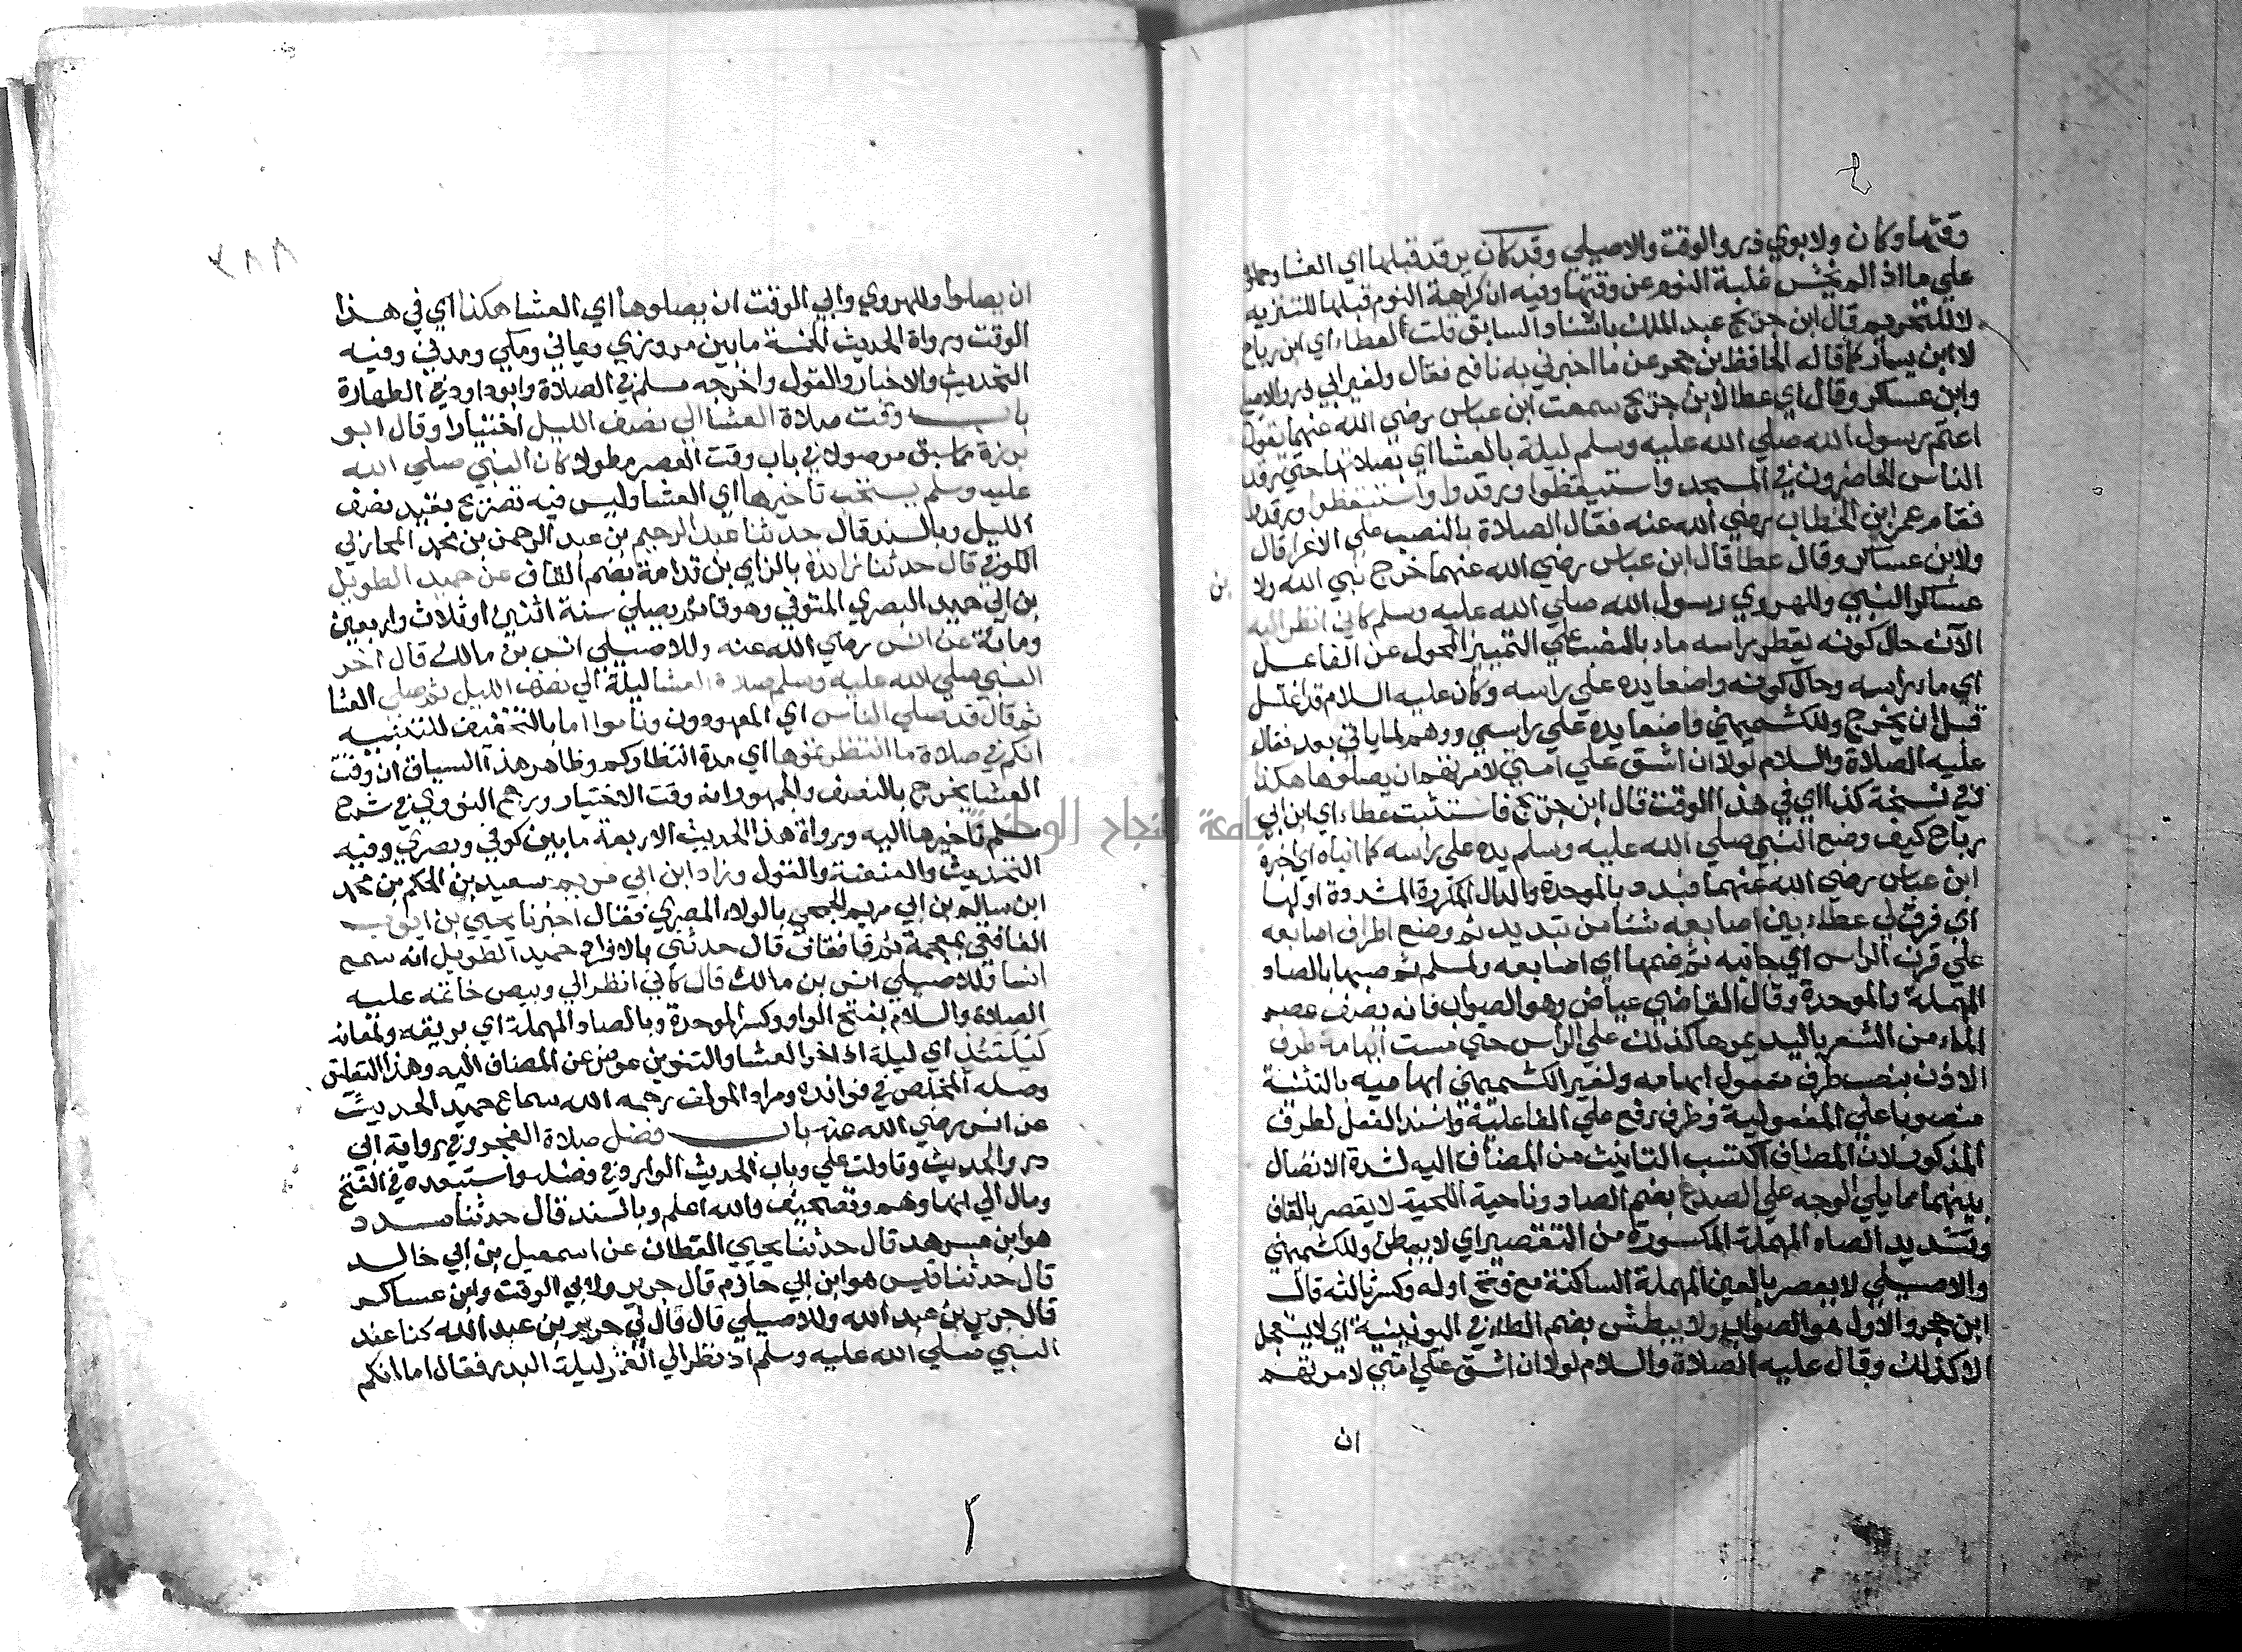 وقتها وكان ولابوي ذر والوقت والاصيلي وقد كان يرقد قبلها اي العشا وحملوا
علي ما اذا لم يخش غلبة النوم عن وقتها وفيه ان كراهة النوم قبلها للتنزيه
لا للتحريم قال ابن جريج عبد الملك باسناد السابق قلت لعطاء اي ابن رباح
لا ابن يسار كما قاله الحافظ بن حجر عن ما اخبرني به نافع فقال ولغير ابي ذر والاصيلي
وابن عساكر وقال اي عطا لابن جريج سمعت ابن عباس رضي الله عنهما يقول
اعتم رسول الله صلي الله عليه وسلم ليلة بالعشا اي بصلاتها حتي رقد
الناس الحاضرون في المسجد واستيقظوا ورقدوا واستيقظوا ورقدوا
فقام عمر ابن الخطاب رضي الله عنه فقال الصلاة بالنصب علي الاغرا قال
ولابن عساكر وقال عطا قال ابن عباس رضي الله عنهما خرج نبي الله ولا بن
عساكر النبي والهروي رسول الله صلي الله عليه وسلم كاني انظر اليه
الآن حال كونه يقطر راسه ماء بالنصب علي التمييز المحول عن الفاعل
اي ماء راسه وحال كونه واضعا يده علي راسه وكان عليه السلام قد اغتسل
قبل ان يخرج وللكشميهني واضعا يده علي راسي ووهم لما ياتي بعد فقال
عليه الصلاة والسلام لولا ان اشق علي امتي لامرتهم ان يصلوها هكذا
وفي نسخة كذا اي في هذا الوقت قال ابن جريج فاستثبت عطاء اي ابن ابي
رباح كيف وضع النبي صلي الله عليه وسلم يده علي راسه كما انباه اي اخبره
ابن عباس رضي الله عنهما فبدد بالموحدة والدال المكررة المشددة اولها
اي فرق لي عطاء بين اصابعه شئا من تبديد ثم وضع اطراف اصابعه
علي قرن الراس اي جانبه ثم ضمها اي اصابعه ولمسلم ثم صبها بالصاد
المهملة والموحدة وقال القاضي عياض وهو الصواب فانه يصف عصر
الماء من الشعر باليد يمرها كذلك علي الراس حتي مست ابهامه طرف
الاذن بنصب طرف مفعول ابهامه ولغير الكشميهني ابهاميه بالتثنية
منصوبا علي المفعولية وطرف رفع علي الفاعلية واسند الفعل لطرف
المذكور لان المضاف اكتسب التانيث من المضاف اليه لشدة الاتصال
بينهما مما يلي الوجه علي الصدغ بضم الصاد وناحية اللحية لا يقصر بالقاف
وتشديد الصاد المهملة المكسورة من التقصير اي لا يبطئ وللكشميهني
والاصيلي لا يعصر بالعين المهملة الساكنة مع فتح اوله وكسر ثالثه قال
ابن حجر والاول هو الصواب ولا يبطش بضم الطاء في اليونينية اي لا يستعجل
الا كذلك وقال عليه الصلاة والسلام لولا ان اشق علي امتي لامرتهم
ان
ان يصلوا وللهروي وابي الوقت ان يصلوها اي العشا هكذا اي في هذا
الوقت ورواة الحديث الخمسة ما بين مروزي ويماني ومكي ومدني وفيه
التحديث والاخبار والقول واخرجه مسلم في الصلاة وابو داود في الطهارة
باب وقت صلاة العشا الي نصف الليل اختيارا وقال ابو
برزة مما سبق موصولا في باب وقت العصر مطولا كان النبي صلي الله
عليه وسلم يستحب تاخيرها اي العشا وليس فيه تصريح بقيد نصف
الليل وبالسند قال حدثنا عبد الرحيم بن عبد الرحمن بن محمد المحاربي
الكوفي قال حدثنا زائدة بالزاي بن قدامة بضم القاف عن حميد الطويل
بن ابي حميد البصري المتوفي وهو قائم يصلي سنة اثنين او ثلاث واربعين
ومائة عن انس رضي الله عنه وللاصيلي انس بن مالك قال اخر
النبي صلي الله عليه وسلم صلاة العشا ليلة الي نصف الليل ثم صلي العشا
ثم قال قد صلي الناس اي المعهودون وناموا اما بالتخفيف للتنبيه
انكم في صلاة ما انتظرتموها اي مدة انتظاركم وظاهر هذا السياق ان وقت
العشا يخرج بالنصف والجمهور انه وقت الاختيار ورجح النووي في شرح
مسلم تاخيرها اليه ورواة هذا الحديث الاربعة ما بين كوفي وبصري وفيه
التحديث والعنعنة والقول وزاد ابن ابي مريم سعيد بن الحكم بن محمد
ابن سالم بن ابي مريم الجمحي بالولاء المصري فقال اخبرنا يحيي بن ايوب
الغافقي بمعجمة ثم فا فقاف قال حدثني بالافراد حميد الطويل انه سمع
انسا وللاصيلي انس بن مالك قال كاني انظر الي وبيص خاتمه عليه
الصلاة والسلام بفتح الواو وكسر الموحدة وبالصاد المهملة اي بريقه ولمعانه
ليلتئذ اي ليلة اذ اخر العشا والتنوين عوض عن المضاف اليه وهذا التعليق
وصله المخلص في فوائده ومراد المولف رحمه الله سماع حميد الحديث
عن انس رضي الله عنه باب فضل صلاة الفجر وفي رواية ابي
ذر والحديث وتاولت علي وباب الحديث الوارد في فضل واستبعده في الفتح
ومال الي انها وهم وتصحيف والله اعلم وبالسند قال حدثنا مسدد
هو ابن مسرهد قال حدثنا يحيي القطان عن اسمعيل بن ابي خالد
قال حدثنا قيس هو ابن ابي حازم قال جرير ولابي الوقت وابن عساكر
قال جرير بن عبد الله وللاصيلي قال قال لي جرير بن عبد الله كنا عند
النبي صلي الله عليه وسلم اذ نظر الي القمر ليلة البدر فقال اما انكم
جامعة النجاح الوطنية